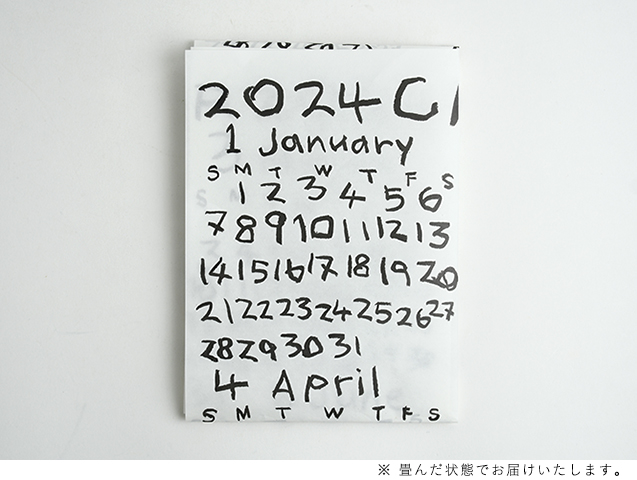 2024 C
1 January
S M T W T F S
1 2 3 4 5 6
7 8 9 10 11 12 13
14 15 16 17 18 19 20
21 22 23 24 25 26 27
28 29 30 31
4 April
S M T W T F S
※ 畳んだ状態でお届けいたします。